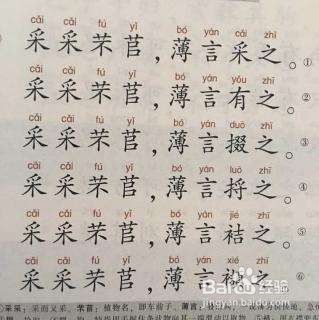 cǎi cǎi fú yǐ bó yán cǎi zhī
采采芣苢,薄言采之。①
cǎi cǎi fú yǐ bó yán yǒu zhī
采采芣苢,薄言有之。②
cǎi cǎi fú yǐ bó yán duō zhī
采采芣苢,薄言掇之。③
cǎi cǎi fú yǐ bó yán luō zhī
采采芣苢,薄言捋之。④
cǎi cǎi fú yǐ bó yán jié zhī
采采芣苢,薄言袺之。⑤
cǎi cǎi fú yǐ bó yán xié zhī
采采芣苢,薄言襭之。⑥
Baidu 经验
①采采:采而又采。芣苢:植物名,即车前子。薄言: